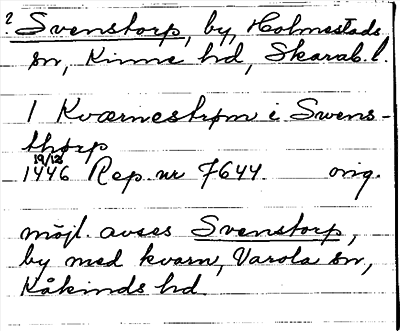 ? Svenstorp, by, Holmestads
sn, Kinne hd, Skarab. l.
1 Kværnestrøm i Swens-
thorp
19/12
1446 Rep. nr 7644. orig.
möjl. avses Svenstorp,
by med kvarn, Varola sn,
Kåkinds hd.